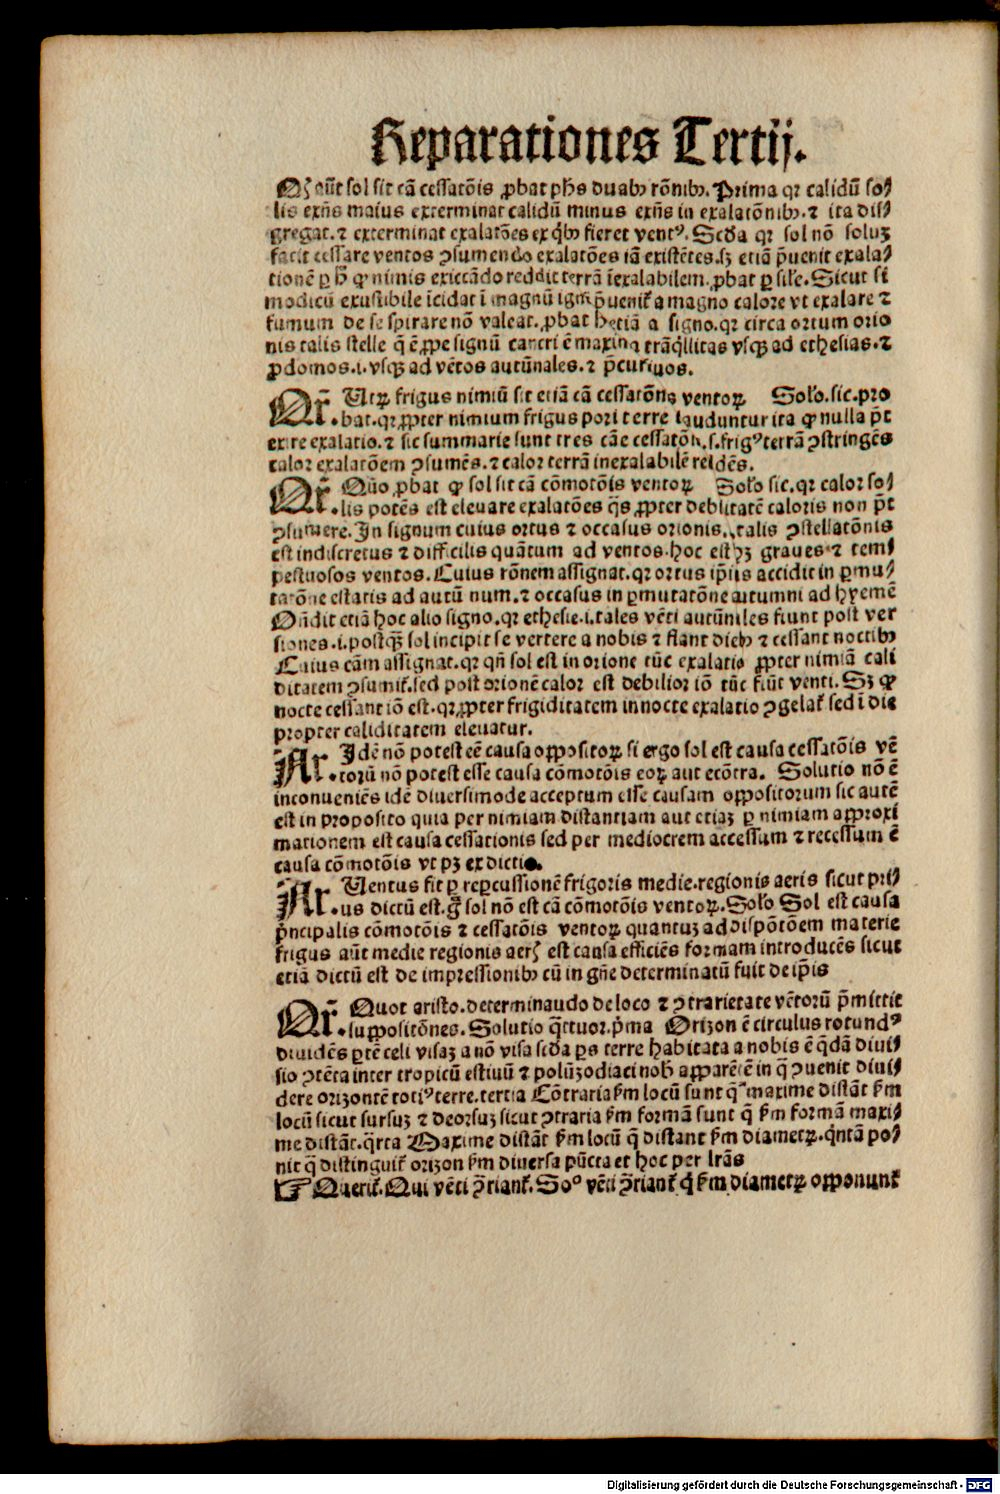 Reparationes Tertij.
Qꝫ aūt sol sit cā cessatōis ꝓbat ph̄s duabꝰ rōnibꝰ. Prima qr calidū so⸗
lis exn̄s maius exterminat calidū minus exn̄s in exalatōnibꝰ. ⁊ ita dis⸗
gregat. ⁊ exterminat exalatōes ex q̇bꝰ fieret ventꝰ. Scd̄a qr sol nō soluꝫ
facit cessare ventos ꝯsumendo exalatōes iā existētes. sꝫ etiā p̄uenit exala⸗
tionē ꝑ h̄ ꝙ nimis exiccādo reddit terrā īexalabilem. ꝓbat ꝑ sil̄e. Sicut si
modicū exustibile īcidat ī magnū ignē p̄uenit᷑ a magno calore vt exalare ⁊
fumum de se spirare nō valeat. ꝓbat h̄ etiā a signo. qr circa ortum orio
nis talis stelle q̄ ē ꝓpe signū cancri ē maxima trāq̇llitas vsqꝫ ad ethesias. ⁊
ꝓdomos. i. vsqꝫ ad vētos autūnales. ⁊ p̄cursiuos.
Qr̄. Utrꝫ frigus nimiū sit etiā cā cessatōnis ventoꝝ Solo. sic. pro
bat. qr ꝓpter nimium frigus pori terre clauduntur ita ꝙ nulla p̄t
exire exalatio. ⁊ sic summarie sunt tres cāe cessatōn. s. frigꝰ terrā ꝯstringēs
calor exalatōem ꝯsumēs. ⁊ calor terrā inexalabilē reddēs.
Qr̄. Quō ꝓbat ꝙ sol sit cā cōmotōis ventoꝝ Solo sic. qr calor so⸗
lis potēs est eleuare exalatōes q̄s ꝓpter debilitatē caloris non p̄t
ꝯsumere. In signum cuius ortus ⁊ occasus orionis. talis ꝯstellatōnis
est indiscretus ⁊ difficilis quātum ad ventos. hoc est hꝫ graues ⁊ tem⸗
pestuosos ventos. Cuius rōnem assignat. qr ortus ip̄ius accidit in ꝑmu⸗
tatōne estatis ad autūnum. ⁊ occasus in ꝑmutatōne autumni ad hyemē
On̄dit etiā hoc alio signo. qr ethesie. i. tales vēti autūniles fiunt post ver
siones. i. postqꝫ sol incipit se vertere a nobis ⁊ flant diebꝰ ⁊ cessant noctibꝰ
Cuius cām assignat. qr qn̄ sol est in orione tūc exalatio ꝓpter nimiā cali
ditatem ꝯsumit᷑. sed post orionē calor est debilior iō tūc fiūt venti. Sꝫ ꝙ
nocte cessant iō est. qr ꝓpter frigiditatem in nocte exalatio ꝯgelat᷑ sed ī die
propter caliditatem eleuatur.
Ar. Idē nō potest eē causa oppositoꝝ si ergo sol est causa cessatōis vē
torū nō potest esse causa cōmotōis eoꝝ aut ecōtra. Solutio nō ē
inconueniēs idē diuersimode acceptum esse causam oppositorum sic autē
est in proposito quia per nimiam distantiam aut etiaꝫ ꝑ nimiam approxi
mationem est causa cessationis sed per mediocrem accessum ⁊ recessum ē
causa cōmotōis vt pꝫ ex dictis.
Ar. Uentus fit ꝑ reꝑcussionē frigoris medie. regionis aeris sicut pri⸗
us dictū est. g̊ sol nō est cā cōmotōis ventoꝝ. Solo Sol est causa
p̄ncipalis cōmotōis ⁊ cessatōis ventoꝝ quantuꝫ ad dispōtōem materie
frigus aūt medie regionis aerꝫ est causa efficiēs formam introducēs sicut
etiā dictū est de impressionibꝰ cū in gn̄e determinatū fuit de ip̄is
Qr̄. Quot aristo. determinando de loco ⁊ ꝯtrarietate vētorū p̄mittit
suppositōnes. Solutio q̄tuor. p̄ma Orizon ē circulus rotundꝰ
diuidēs ꝑtē celi visaꝫ a nō visa scd̄a ꝑs terre habitata a nobis ē q̄dā diui⸗
sio ꝯtēta inter tropicū estiuū ⁊ polūꝫodiaci nobꝰ apparētē in q̄ ꝯuenit diui⸗
dere orizontē totiꝰ terre. tertia Cōtraria ẜm locū sunt q̄ maxime distāt ẜm
locū sicut sursuꝫ ⁊ deorsuꝫ sicut ꝯtraria ẜm formā sunt q̄ ẜm formā maxi⸗
me distāt. q̄rta Maxime distāt ẜm locū q̄ distant ẜm diametꝝ. q̇ntā po⸗
nit q̄ distinguit᷑ orizon ẜm diuersa pūcta et hoc per lr̄as
☞ Querit᷑. Qui vēti ꝯ̄riant᷑. Soꝰ vēti ꝯ̄riant᷑ q̇ ẜm diametꝝ opponunt᷑
Digitalisierung gefördert durch die Deutsche Forschungsgemeinschaft - DFG